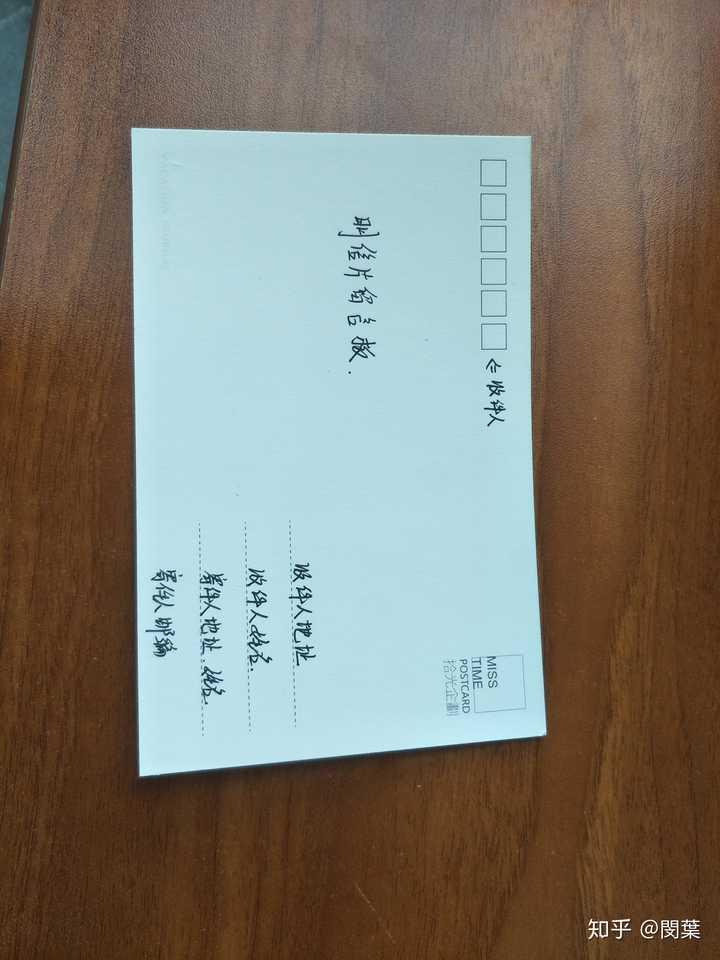 ⇐收件人
明信片留言板.
MISS
TIME
POSTCARD
拾光企劃
收件人地址
收件人姓名.
寄件人地址.姓名.
寄件人邮编
知乎 @閔葉